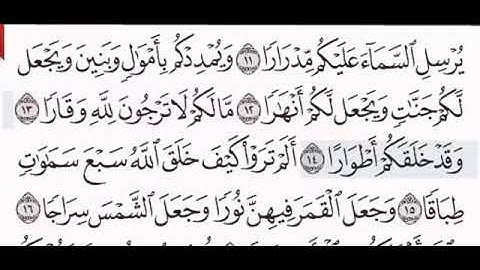 يُرْسِلِ ٱلسَّمَآءَ عَلَيْكُم مِّدْرَارًا ١١ وَيُمْدِدْكُم بِأَمْوَٰلٍ وَبَنِينَ وَيَجْعَل
لَّكُمْ جَنَّٰتٍ وَيَجْعَل لَّكُمْ أَنْهَٰرًا ١٢ مَّا لَكُمْ لَا تَرْجُونَ لِلَّهِ وَقَارًا ١٣
وَقَدْ خَلَقَكُمْ أَطْوَارًا ١٤ أَلَمْ تَرَوْا۟ كَيْفَ خَلَقَ ٱللَّهُ سَبْعَ سَمَٰوَٰتٍ
طِبَاقًا ١٥ وَجَعَلَ ٱلْقَمَرَ فِيهِنَّ نُورًا وَجَعَلَ ٱلشَّمْسَ سِرَاجًا ١٦